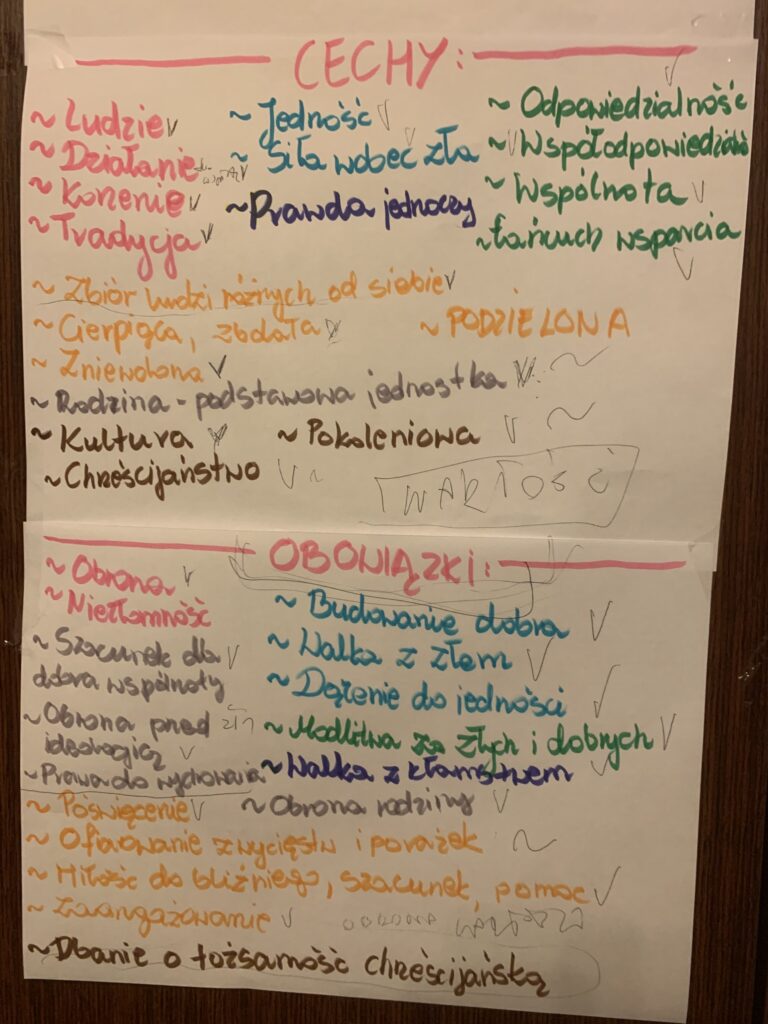 CECHY:
~ Ludzie
~ Działanie
~ Korzenie
~ Tradycja
~ Jedność
~ Siła wobec zła
~ Prawda jednoczy
~ Odpowiedzialność
~ Współodpowiedzialność
~ Wspólnota
~ Łańcuch wsparcia
~ Zbiór ludzi różnych od siebie
~ Cierpiąca, zbolała
~ PODZIELONA
~ Zniewolona
~ Rodzina - podstawowa jednostka
~ Kultura
~ Pokoleniowa
~ Chrześcijaństwo
WARTOŚĆ
OBOWIĄZKI:
~ Obrona
~ Niezłomność
~ Szacunek dla
dobra wspólnoty
~ Obrona przed złą
ideologią
~ Prawa do wychowania
~ Budowanie dobra
~ Walka z złem
~ Dążenie do jedności
~ Modlitwa za złych i dobrych
~ Walka z kłamstwem
~ Poświęcenie
~ Obrona rodziny
~ Ofiarowanie zwycięstw i porażek
~ Miłość do bliźniego, szacunek, pomoc
~ Zaangażowanie
~ Dbanie o tożsamość chrześcijańską